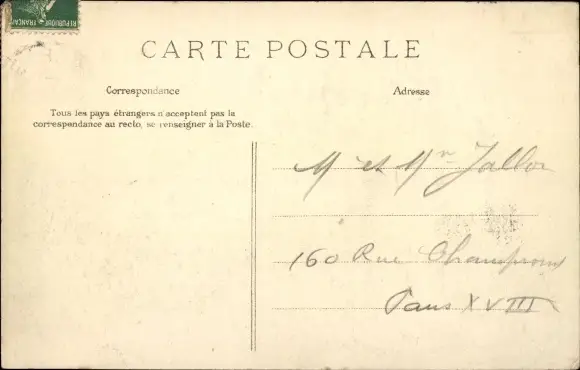 RÉPUBLIQUE FRANÇAI
CARTE POSTALE
Correspondance
Adresse
Tous les pays étrangers n'acceptent pas la
correspondance au recto, se renseigner à la Poste.
M et Mme
160 Rue
Paris XVIII